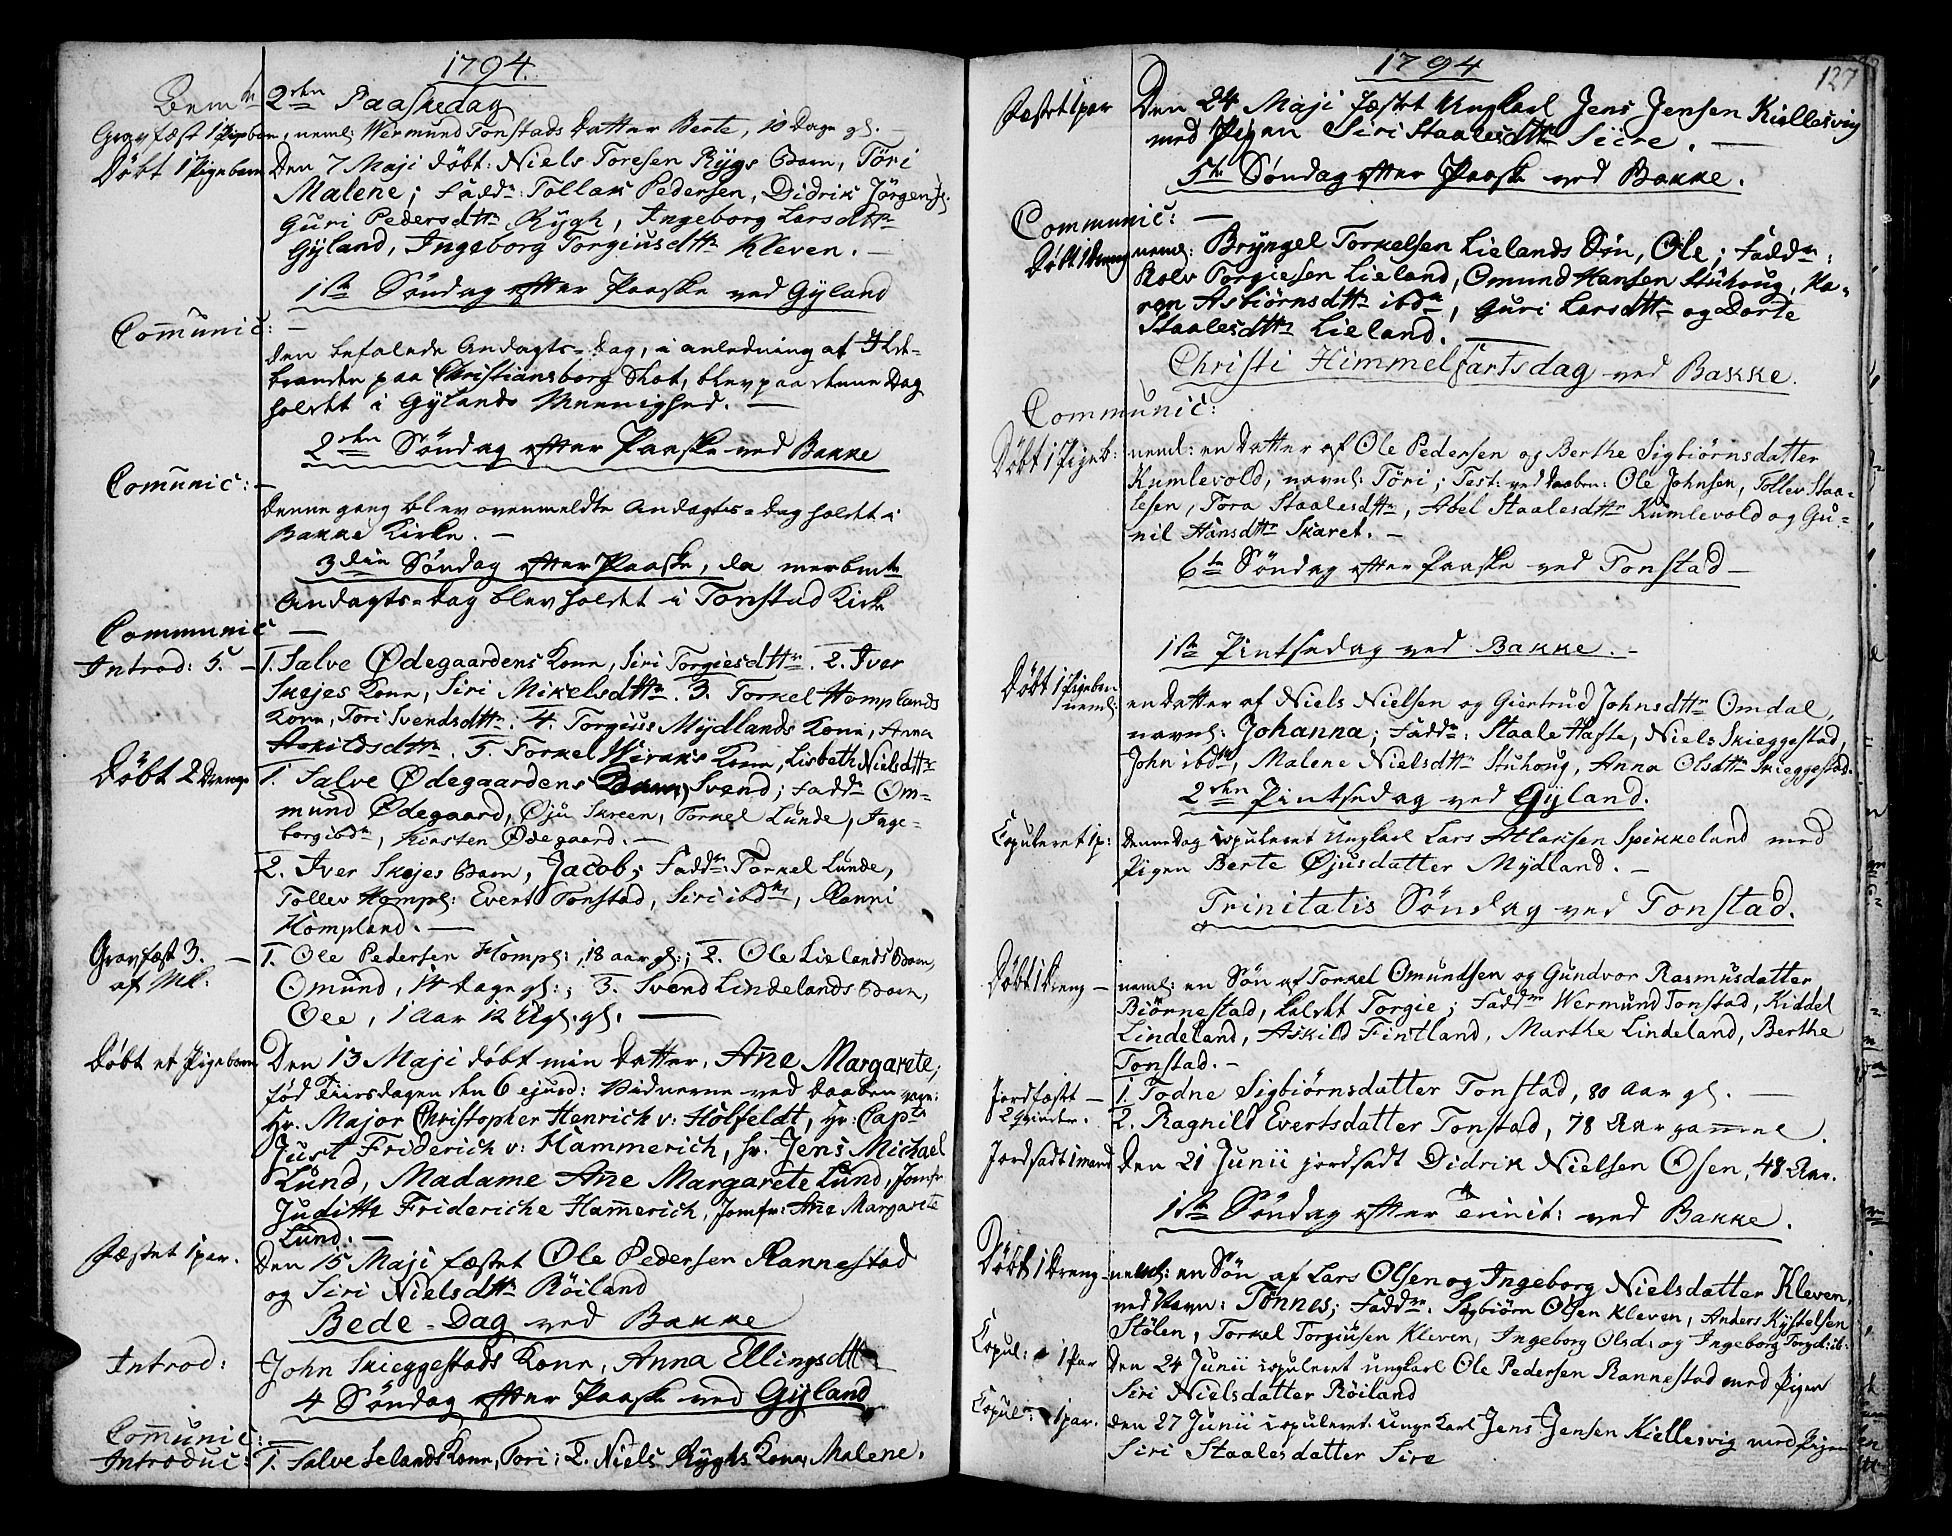 1794.
2den Paaskedag
Gravfæst 1 Pigebarn, neml: Wermund Tonstads Datter Berte, 10 Dage gl. —
Døbt 1 Pigebarn Den 7 Maji døbt: Niels Toresen Rygs Barn, Töri
Malene; Fadd: Tollak Pedersen, Didrik Jörgens:
Guri Pedersdttr Rygh, Ingeborg Larsdttr
Gyland, Ingeborg Torgiusdttr Kleven. —
1ste Søndag efter Paaske ved Gyland
Comunic: —
Den befalede Andagts-Dag, i anledning af Ilde-
branden paa Christiansborg Slot, blev paa denne Dag
holdet i Gylands Meenighed. —
2den Søndag efter Paaske ved Bakke
Comunic: —
Denne gang blev ovenmeldte Andagts-Dag holdet i
Bakke Kirke. —
3die Søndag efter Paaske, da merbmte
Andagts-Dag blev holdet i Tonstad Kirke
Communic —
Introd: 5. — 1. Salve Ødegaardens Kone, Siri Torgiesdttr. 2. Iver
Skejes Kone, Siri Mikelsdttr. 3. Torkel Homplands
Kone, Tori Svendsdttr. 4. Torgius Mydlands Kone, Anna
Askildsdttr. 5. Torkel Wiraks Kone, Lisbeth Nielsdttr
Døbt 2 Drenge 1. Salve Ødegaardens Barn, Svend; Fadd: Om-
mund Ødegaard, Øju Skreen, Torkel Lunde, Inge-
borg ibdm, Kirsten Ødegaard. —
2. Iver Skejes Barn, Jacob; Fadd: Torkel Lunde,
Tollev Hompl: Evert Tonstad, Siri ibdm, Ranni
Hompland. —
Gravfæst 3. — 1. Ole Pedersen Hompl:, 18 aar gl:; 2. Ole Lielands Barn,
af Mk: Omund, 14 dage gl:; 3. Svend Lindelands Barn,
Ole, 1 Aar 12 Ugl. gl. —
Døbt et Pigebarn Den 13 Maji døbt min Datter, Ane Margarete,
fød Tiirsdagen den 6 ejusd: Vidnerne ved Daaben vare:
Hr. Major Christopher Henrich v: Holfeldt, Hr. Capt
Just Friderich v: Hammerich, Hr. Jens Michael
Lund, Madame Ane Margarete Lund, Jomfr
Juditte Frideriche Hamerich, Jomfr: Ane Margarete
Lund: —
Fæstet 1 par. Den 15 Maji fæstet Ole Pedersen Rannestad
og Siri Nielsdttr Röiland
Bede-Dag ved Bakke
Introd: John Skieggestads Kone, Anna Ellingsdttr
4 Søndag efter Paaske ved Gyland
Comunic: —
Introduc: 1. Salve Selands Kone, Tori; 2. Niels Ryghs Kone, Malene.
1794
127
Fæstet 1 par Den 24 Maji fæstet Ungkarl Jens Jensen Kiellesvig
med Pigen Siri Staalesdttr Siire. —
5te Søndag efter Paaske ved Bakke.
Communic: —
Døbt 1 Dreng neml: Bryngel Torkelsen Lielands Søn, Ole; Fadd:
Rolv Torgiesen Lieland, Omund Hansen Stuhoug, Ka-
ren Asbiørnsdttr ibdm, Guri Larsdttr og Dorte
Staalesdttr Lieland. —
Christi Himmelfartsdag ved Bakke.
Communic:
Døbt 1 Pigeb: neml: en Datter af Ole Pedersen og Berthe Sigbiørnsdatter
Kumlevold, navnl: Töri; Test: ved Daaben: Ole Johnsen, Tollev Staa-
lesen, Tora Staalesdttr, Abel Staalesdttr Kumlevold og Gu-
nil Hansdttr Skaret. —
6te Søndag efter Paaske ved Tonstad —
1ste Pintsedag ved Bakke. —
Døbt 1 Pigebarn en Datter af Niels Nielsen og Giertrud Johnsdttr Omdal,
neml: navnl: Johanna; Fadd: Staale Hafte, Niels Skieggestad,
John ibdm, Malene Nielsdttr Stuhoug, Anna Olsdttr Skieggestad.
2den Pintsedag ved Gyland.
Copuleret 1 p: Denne Dag copuleret Ungkarl Lars Atlaksen Spikkeland med
Pigen Berte Øjusdatter Mydland. —
Trinitatis Søndag ved Tonstad.
Døbt 1 Dreng — neml: en Søn af Torkel Omundsen og Gundvor Rasmusdatter
Biørnestad, kaldet Torgie; Fadd: Wermund Tonstad, Kiddel
Lindeland, Askild Fintland, Marthe Lindeland, Berthe
Tonstad. —
Jordfæst — 1. Todne Sigbiørnsdatter Tonstad, 80 Aar gl. —
2 Qvinder. 2. Ragnild Evertsdatter Tonstad, 78 Aar gamel.
Jordfæst 1 mand Den 21 Junii jordfæst Didrik Nielsen Osen, 48 Aar.
1ste Søndag efter Trinit: ved Bakke.
Døbt 1 Dreng — neml: en Søn af Lars Olsen og Ingeborg Nielsdatter Kleven,
ved Navn: Tønnes; Fadd: Sigbiørn Olsen Kleven, Anders Kystelsen
Stölen, Torkel Torgiusen Kleven, Ingeborg Olsd: og Ingeborg Torgd: ib:
Copul: 1 Par Den 24 Junii copuleret ungkarl Ole Pedersen Rannestad med Pigen
Siri Nielsdatter Röiland
Copul: 1 par. Den 27 Junii copuleret unge Karl Jens Jensen Kiellesvig med Pigen
Siri Staalesdatter Sire